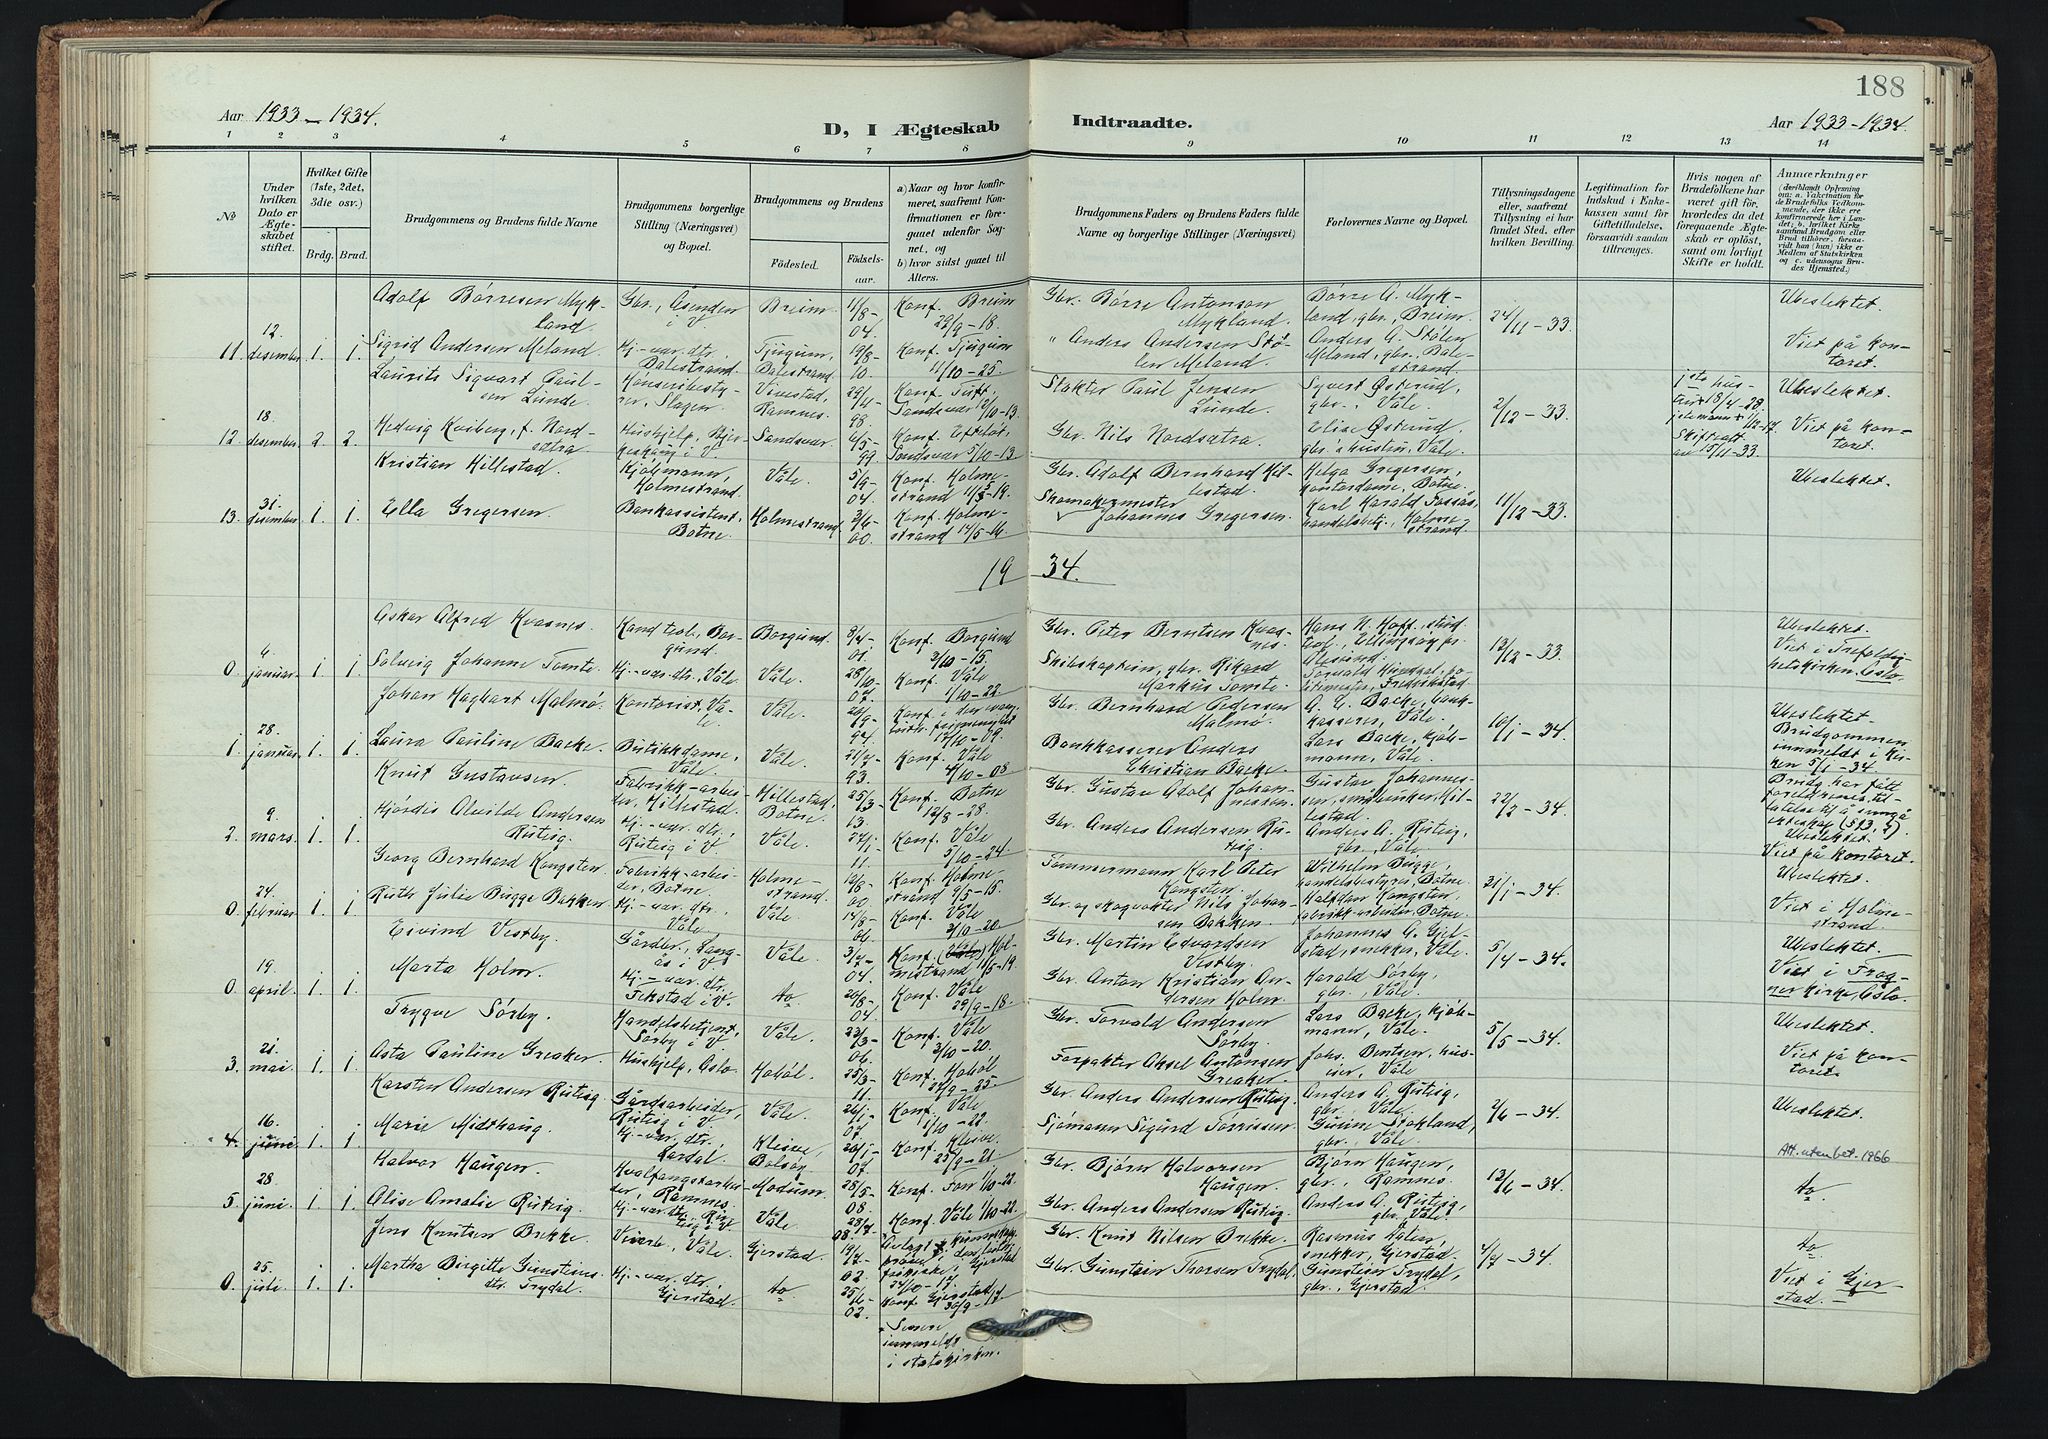 188
Aar 1933 – 1934.
D, I Ægteskab
Indtraadte.
Aar 1933 – 1934.
1 2 3 4 5 6 7 8 9 10 11 12 13 14
No
Under hvilken Dato er Ægteskabet stiftet.
Hvilket Gifte (1ste, 2det, 3die osv.)
Brdg. Brud.
Brudgommens og Brudens fulde Navne
Brudgommens borgerlige Stilling (Næringsvei) og Bopæl.
Brudgommens og Brudens
Fødested.
Fødselsaar.
a) Naar og hvor konfirmeret, saafremt Konfirmationen er foregaaet udenfor Sognet, og
b) hvor sidst gaaet til Alters.
Brudgommens Faders og Brudens Faders fulde Navne og borgerlige Stillinger (Næringsvei)
Forlovernes Navne og Bopæl.
Tillysningsdagene eller, saafremt Tillysning ei har fundet Sted, efter hvilken Bevilling.
Legitimation for Indskud i Enkekassen samt for Giftetilladelse, forsaavidt saadan tiltrænges.
Hvis nogen af Brudefolkene har været gift før, hvorledes da det foregaaende Ægteskab er opløst, samt om lovligt Skifte er holdt.
Anmærkninger
11. 12. desember 1. 1.
Adolf Børresen Mykland.
Gbr., Asenden i V.
Breim 11/8-04.
Konf. Breim 22/9-18.
Gbr. Børre Antonson Mykland.
Børre A. Mykland, gbr., Breim.
24/11-33.
Ubeslektet.
Sigrid Andersen Meland.
Hj.-vær. dtr. Balestrand.
Tjugum, Balestrand. 19/8-10.
Konf. Tjugum 11/10-25.
" Anders Andersen Stølen Meland.
Anders A. Stølen Meland, gbr., Balestrand.
Viet på kontoret.
12. 18. desember 2. 2.
Laurits Sigvart Paulsen Lunde.
Hønseribestyrer, Slagen.
Vivestad, Ramnes. 29/11-98.
Konf. Tuft, Sandsvær 12/10-13.
Slakter Paul Jensen Lunde.
Syvert Østerud, gbr., Våle.
2/12-33.
Ubeslektet.
Hedvig Kviberg, f. Nordsætra.
Sandsvær 4/5-99.
Gbr. Nils Nordsætra.
Elise Østerud, gbr.'s hustru, Våle.
Viet på kontoret.
13. 31. desember 1. 1.
Kristian Hillestad.
Kjølmann, Holmestrand.
Våle. 5/9-04.
Konf. Holmestrand 11/5-19.
Gbr. Adolf Bernhard Hillestad.
Helga Gregersen, kontordame, Botne.
11/12-33.
Ubeslektet.
Ella Gregersen.
Bankassistent, Botne.
Holmestrand 3/6-00.
Konf. Holmestrand 14/5-16.
Skomakermester Johannes Gregersen.
Karl Harald Fassås, handelsbetj., Holmestrand.
1934.
0. 4. januar. 1. 1.
Oskar Alfred Kvasnes.
Kand. teol., Borgund.
Borgund. 8/4-01.
Konf. Borgund 3/10-15.
Gbr. Peter Berntsen Kvasnes.
Hans K. Hoff, stud. teol., Ellingsøy pr. Ålesund.
13/12-33.
Ubeslektet.
Solveig Johanne Tomte.
Hj.-vær. dtr., Våle.
Våle. 28/10-07.
Konf. Våle 1/10-22.
Skibskaptein, gbr. Rikard Markus Tomte.
Viet i Trefoldighetskirken, Oslo.
1. 28. januar. 1. 1.
Johan Hagbart Malmø.
Kontorist, Våle.
Våle. 26/9-94.
Konf. i den evang. luth. frimenighet 17/10-09.
Gbr. Bernhard Pedersen Malmø.
A. C. Backe, bankkasserer, Våle.
10/1-34.
Ubeslektet.
Brudgommen innmeldt i kirken 5/1-34.
Laura Pauline Backe.
Butikkdame, Våle.
Våle. 21/7-93.
Konf. Våle 4/10-08
Bankkasserer Anders Christian Backe.
Lars Backe, kjølmann, Våle.
2. 9. mars. 1. 1.
Knut Gustavsen.
Fabrikk-arbeider, Hillestad.
Hillestad, Botne. 25/3-13.
Konf. Botne 12/8-28.
Gbr. Gustav Adolf Johannessen.
Gustav Johannessen, småbruker, Hillestad.
22/2-34.
Bruden har fått foreldrenes tillatelse til å inngå ekteskap (§ 3, 2).
Ubeslektet.
Viet på kontoret.
Hjørdis Alvilde Andersen Rutsig.
Hj.-vær. dtr., Rutsig i V.
Våle. 24/1-11.
Konf. Våle 5/10-24.
Gbr. Anders Andersen Rutsig.
Anders A. Rutsig, gbr., Våle.
0. 24. februar. 1. 1.
Georg Bernhard Kongsten.
Fabrikk-arbeider, Botne.
Holmestrand. 12/8-00.
Konf. Holmestrand 9/5-15.
Tømmermann Karl Peter Kongsten.
Wilhelm Bugge, handelsbestyrer, Botne.
21/1-34.
Ubeslektet.
Ruth Julie Bugge Bakken.
Hj.-vær. dtr., Våle.
Våle. 14/8-06.
Konf. Våle 3/10-20.
Gbr. og skogvokter Nils Johansen Bakken.
Halfdan Kongsten, fabrikk-arbeider, Botne.
Viet i Holmestrand.
0. 19. april. 1. 1.
Eivind Vestby.
Gårdbr., Langås i V.
Våle. 3/7-04.
Konf. (Våle), Holmestrand 11/5-19.
Gbr. Martin Edvardsen Vestby.
5/4-34.
Ubeslektet.
Marta Holm.
Hj.-vær. dtr. Fekstad i V.
do 26/8-04
Konf. Våle 29/9-18.
Gbr. Anton Kristian Andersen Holm.
Harald Sørby, gbr., Våle.
Viet i Frogner kirke, Oslo.
3. 21. mai. 1. 1.
Trygve Sørby.
Handelsbetjent, Sørby i V.
Våle. 23/3-06.
Konf. Våle 3/10-20.
Gbr. Torvald Andersen Sørby.
Lars Backe, kjølmann, Våle.
5/5-34.
Ubeslektet.
Asta Pauline Greaker.
Hushjelp, Oslo.
Hobøl. 25/3-11.
Konf. Hobøl 27/9-25.
Forpakter Aksel Antonsen Greaker.
Johs. Berntsen, huseier, Våle
Viet på kontoret.
4. 16. juni. 1. 1.
Karsten Andersen Rutsig.
Gårdsarbeider, Rutsig i V.
Våle. 26/1-07.
Konf. Våle 1/10-22.
Gbr. Anders Andersen Rutsig.
Anders A. Rutsig, gbr., Våle.
2/6-34.
Ubeslektet.
Marie Midthaug.
Hj.-vær. dtr., Lardal.
Kleive, Bolsøy 20/1-07.
Konf. Kleive 25/9-21.
Sjømann Sigurd Torrissen.
Gunine Stokland, gbr., Våle.
Att. utenbet. 1966
5. 28. juni. 1. 1.
Halvor Haugen.
Hvalfangstarbeider, Ramnes.
Modum. 28/5-08.
Konf. Fon 1/10-22.
Gbr. Bjørn Halvorsen Haugen.
Bjørn Haugen, gbr., Ramnes.
13/6-34.
do.
Alise Amalie Rutsig.
Hj.-vær. dtr., Rutsig i V.
Våle 28/7-08.
Konf. Våle 1/10-22.
Gbr. Anders Andersen Rutsig.
Anders A. Rutsig, gbr., Våle.
0. 25. juli. 1. 1.
Jens Knutsen Brekke.
Våle.
Gjerstad. 19/7-02.
Gbr. Knut Nilsen Brekke.
Rasmus Dalen, snekker, Gjerstad.
4/7-34.
do
Martha Birgitte Gunsteinsdtr. Trydal.
Hj.-vær. dtr., Gjerstad.
do 25/6-02.
Konf. Gjerstad, 30/9-17.
Gbr. Gunstein Thorsen Trydal.
Gunstein Trydal, gbr., Gjerstad.
Viet i Gjerstad. –
Senere innmeldt i statskirken.